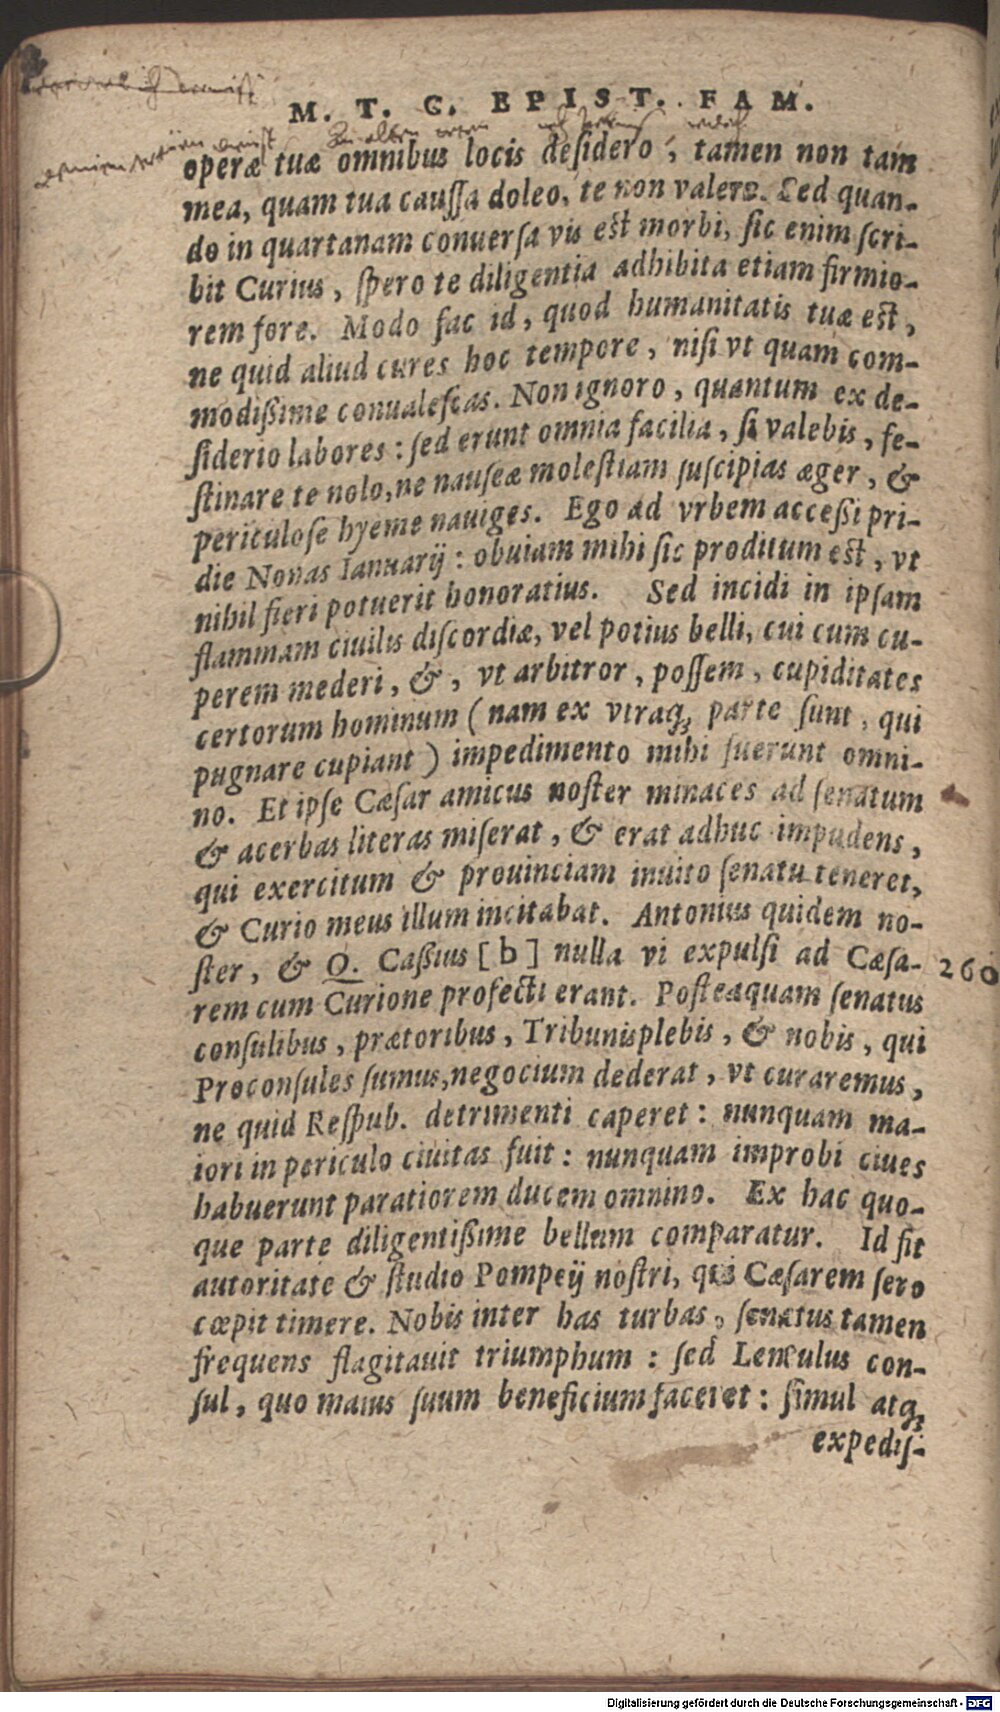 M. T. C. EPIST. FAM.
operæ tuæ omnibus locis desidero, tamen non tam
mea, quam tua caussa doleo, te non valere. Sed quan-
do in quartanam conuersa vis est morbi, sic enim scri-
bit Curius, spero te diligentia adhibita etiam firmio-
rem fore. Modo fac id, quod humanitatis tuæ est,
ne quid aliud cures hoc tempore, nisi vt quam com-
modißime conualescas. Non ignoro, quantum ex de-
siderio labores: sed erunt omnia facilia, si valebis, fe-
stinare te nolo, ne nauseæ molestiam suscipias æger, &
periculose hyeme nauiges. Ego ad vrbem accessi pri-
die Nonas Ianuarij: obuiam mihi sic proditum est, vt
nihil fieri potuerit honoratius. Sed incidi in ipsam
flammam ciuilis discordiæ, vel potius belli, cui cum cu-
perem mederi, &, vt arbitror, possem, cupiditates
certorum hominum (nam ex vtraq; parte sunt, qui
pugnare cupiant) impedimento mihi fuerunt omni-
no. Et ipse Cæsar amicus noster minaces ad senatum
& acerbas literas miserat, & erat adhuc impudens,
qui exercitum & prouinciam inuito senatu teneret,
& Curio meus illum incitabat. Antonius quidem no-
ster, & Q. Caßius [b] nulla vi expulsi ad Cæsa-
260
rem cum Curione profecti erant. Posteaquam senatus
consulibus, prætoribus, Tribunisplebis, & nobis, qui
Proconsules sumus, negocium dederat, vt curaremus,
ne quid Respub. detrimenti caperet: nunquam ma-
iori in periculo ciuitas fuit: nunquam improbi ciues
habuerunt paratiorem ducem omnino. Ex hac quo-
que parte diligentißime bellum comparatur. Id fit
autoritate & studio Pompeij nostri, qui Cæsarem sero
cœpit timere. Nobis inter has turbas, senatus tamen
frequens flagitauit triumphum: sed Lentulus con-
sul, quo maius suum beneficium faceret: simul atq;
expedis-
Digitalisierung gefördert durch die Deutsche Forschungsgemeinschaft - DFG